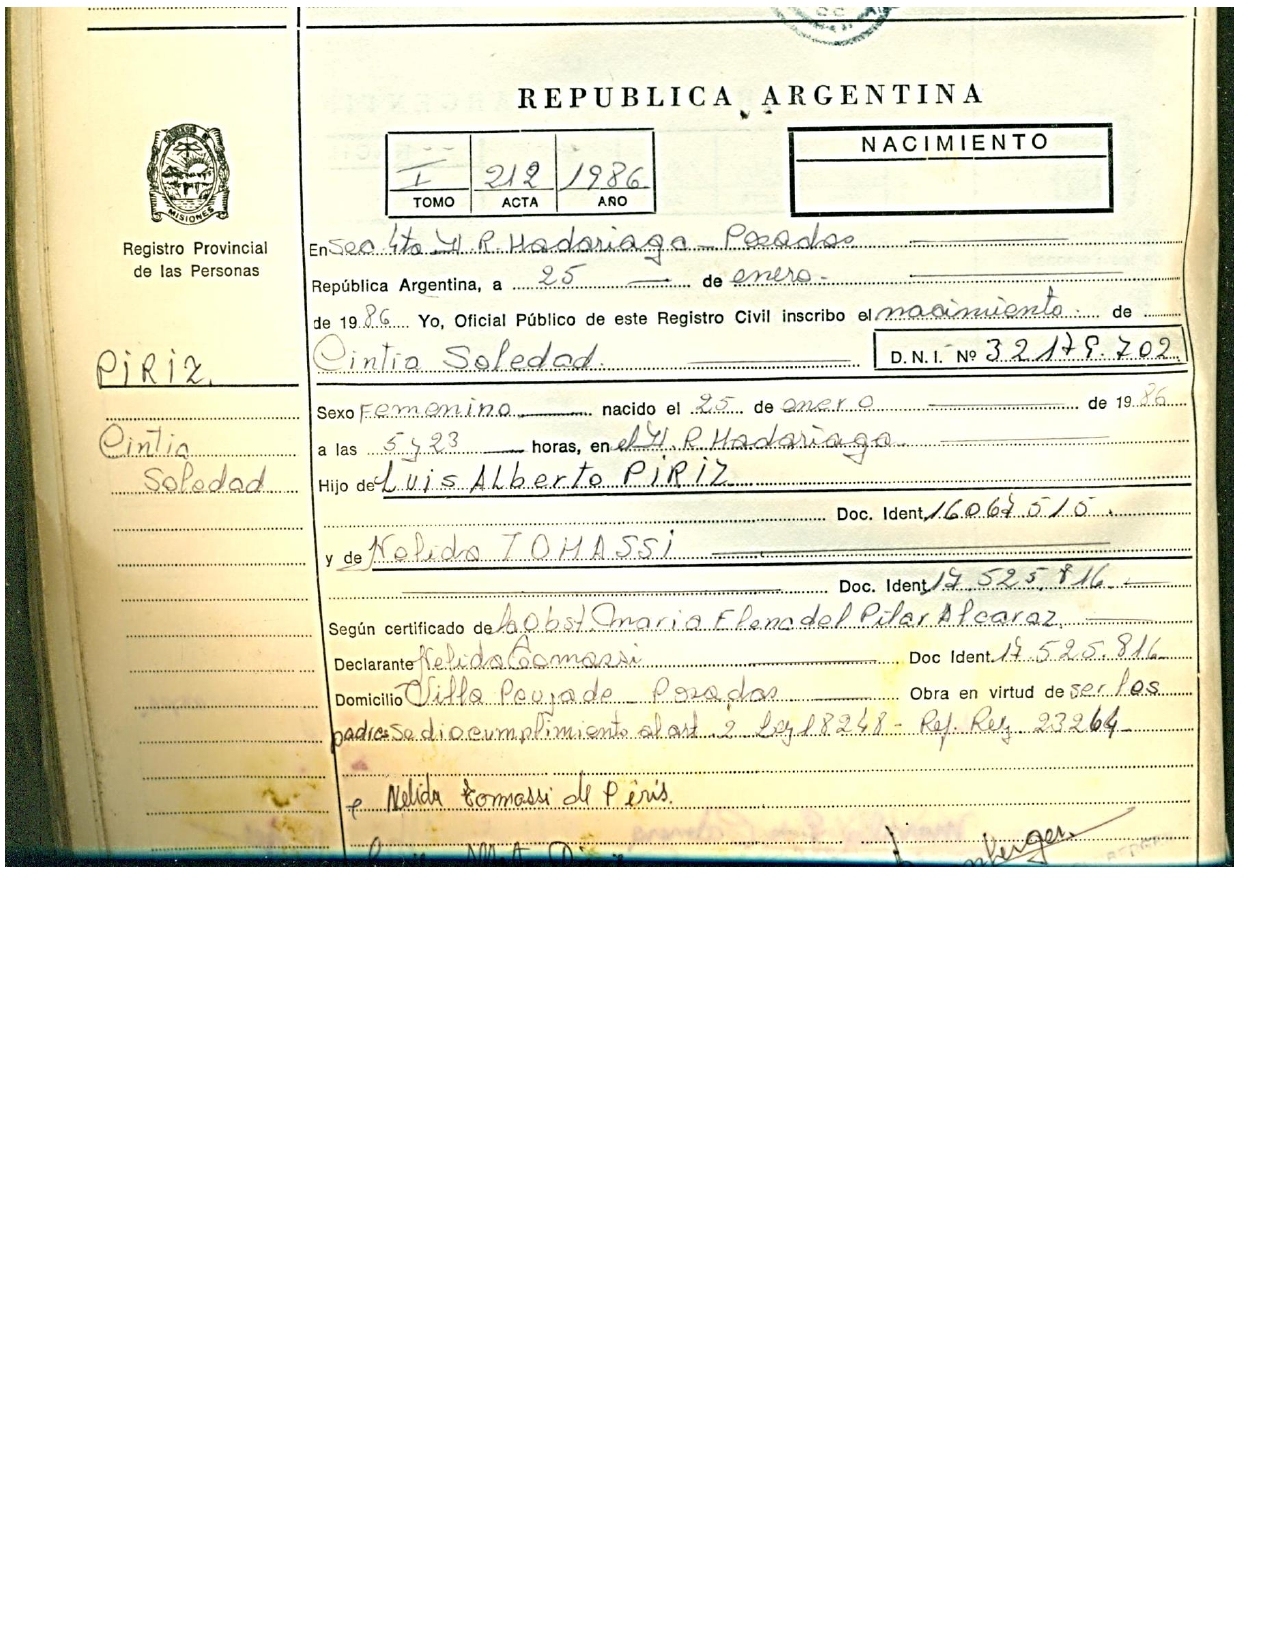 REPUBLICA ARGENTINA
NACIMIENTO
I 212 1986
TOMO ACTA AÑO
MISIONES
Registro Provincial
de las Personas
En Sec 4ta H. R. Madariaga - Posadas
República Argentina, a 25 de enero
de 1986 Yo, Oficial Público de este Registro Civil inscribo el nacimiento de
Cintia Soledad. D. N. I. Nº 32179.702
PiRiZ
Sexo Femenino nacido el 25 de enero de 1986
Cintia
a las 5 y 23 horas, en el H. R. Madariaga
Soledad
Hijo de Luis Alberto PiRiZ
Doc. Ident. 16067515
y de Nelida TOMASSi
Doc. Ident. 17.525.816
Según certificado de la Obst. Maria Elena del Pilar Alcaraz
Declarante Nelida Tomassi Doc Ident. 17.525.816
Domicilio Villa Poujade Posadas Obra en virtud de ser los
padres Se dio cumplimiento al art. 2 Ley 18248 - Ref. Ley 23264
Nelida Tomassi de Piris.